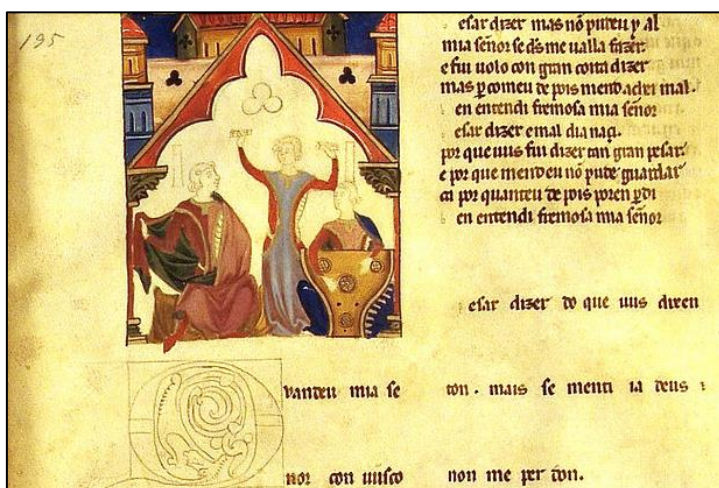 195
uandeu mia se
nor con uusco
esar dizer mas nõ pudeu y al
mia señor se d̃s me ualla fazer
e fui uolo con gran coita dizer
mas ꝑ comeu depois mend achei mal.
en entendi fremosa mia señor
esar dizer e mal dia naçi.
por que uus fui dizer tan gran pesar
e por que mend eu nõ pude guardar
ca por quanteu depois poren ꝑdi
en entendi fremosa mia señor
esar dizer do que uus dixen
ton. mais se menti ia deus
non me per don.